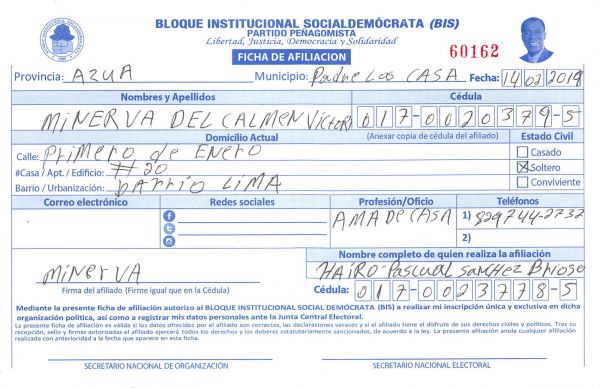 BLOQUE INSTITUCIONAL SOCIALDEMÓCRATA (BIS)
PARTIDO PEÑAGOMISTA
Libertad, Justicia, Democracia y Solidaridad
FICHA DE AFILIACION
60162
Provincia: AZUA Municipio: Padre Las CASA Fecha: 14/03/2019
Nombres y Apellidos Cédula
MINERVA DEL CALMEN VICTORI 017-0020379-5
Domicilio Actual (Anexar copia de cédula del afiliado) Estado Civil
Calle: Primero de ENERO Casado
#Casa / Apt. / Edificio: #20 Soltero
Barrio / Urbanización: barrio LIMA Conviviente
Correo electrónico Redes sociales Profesión/Oficio Teléfonos
AMA DE CASA 1) 829744-2732
2)
Nombre completo de quien realiza la afiliación
MINERVA HAIRO Pascual SANCHEZ Brioso
Firma del afiliado (Firme igual que en la Cédula) Cédula: 017-0023778-5
Mediante la presente ficha de afiliación autorizo al BLOQUE INSTITUCIONAL SOCIAL DEMÓCRATA (BIS) a realizar mi inscripción única y exclusiva en dicha
organización política, así como a registrar mis datos personales ante la Junta Central Electoral.
La presente ficha de afiliación es válida si los datos ofrecidos por el afiliado son correctos, las declaraciones veraces y si el afiliado tiene el disfrute de sus derechos civiles y políticos. Tras su
recepción, sello y firmas autorizadas el afiliado ejercerá todos los derechos y los deberes estatutariamente sancionados, de acuerdo a la ley. La presente afiliación anula cualquier afiliación
realizada con anterioridad a la fecha que aparece en esta ficha.
SECRETARIO NACIONAL DE ORGANIZACIÓN SECRETARIO NACIONAL ELECTORAL